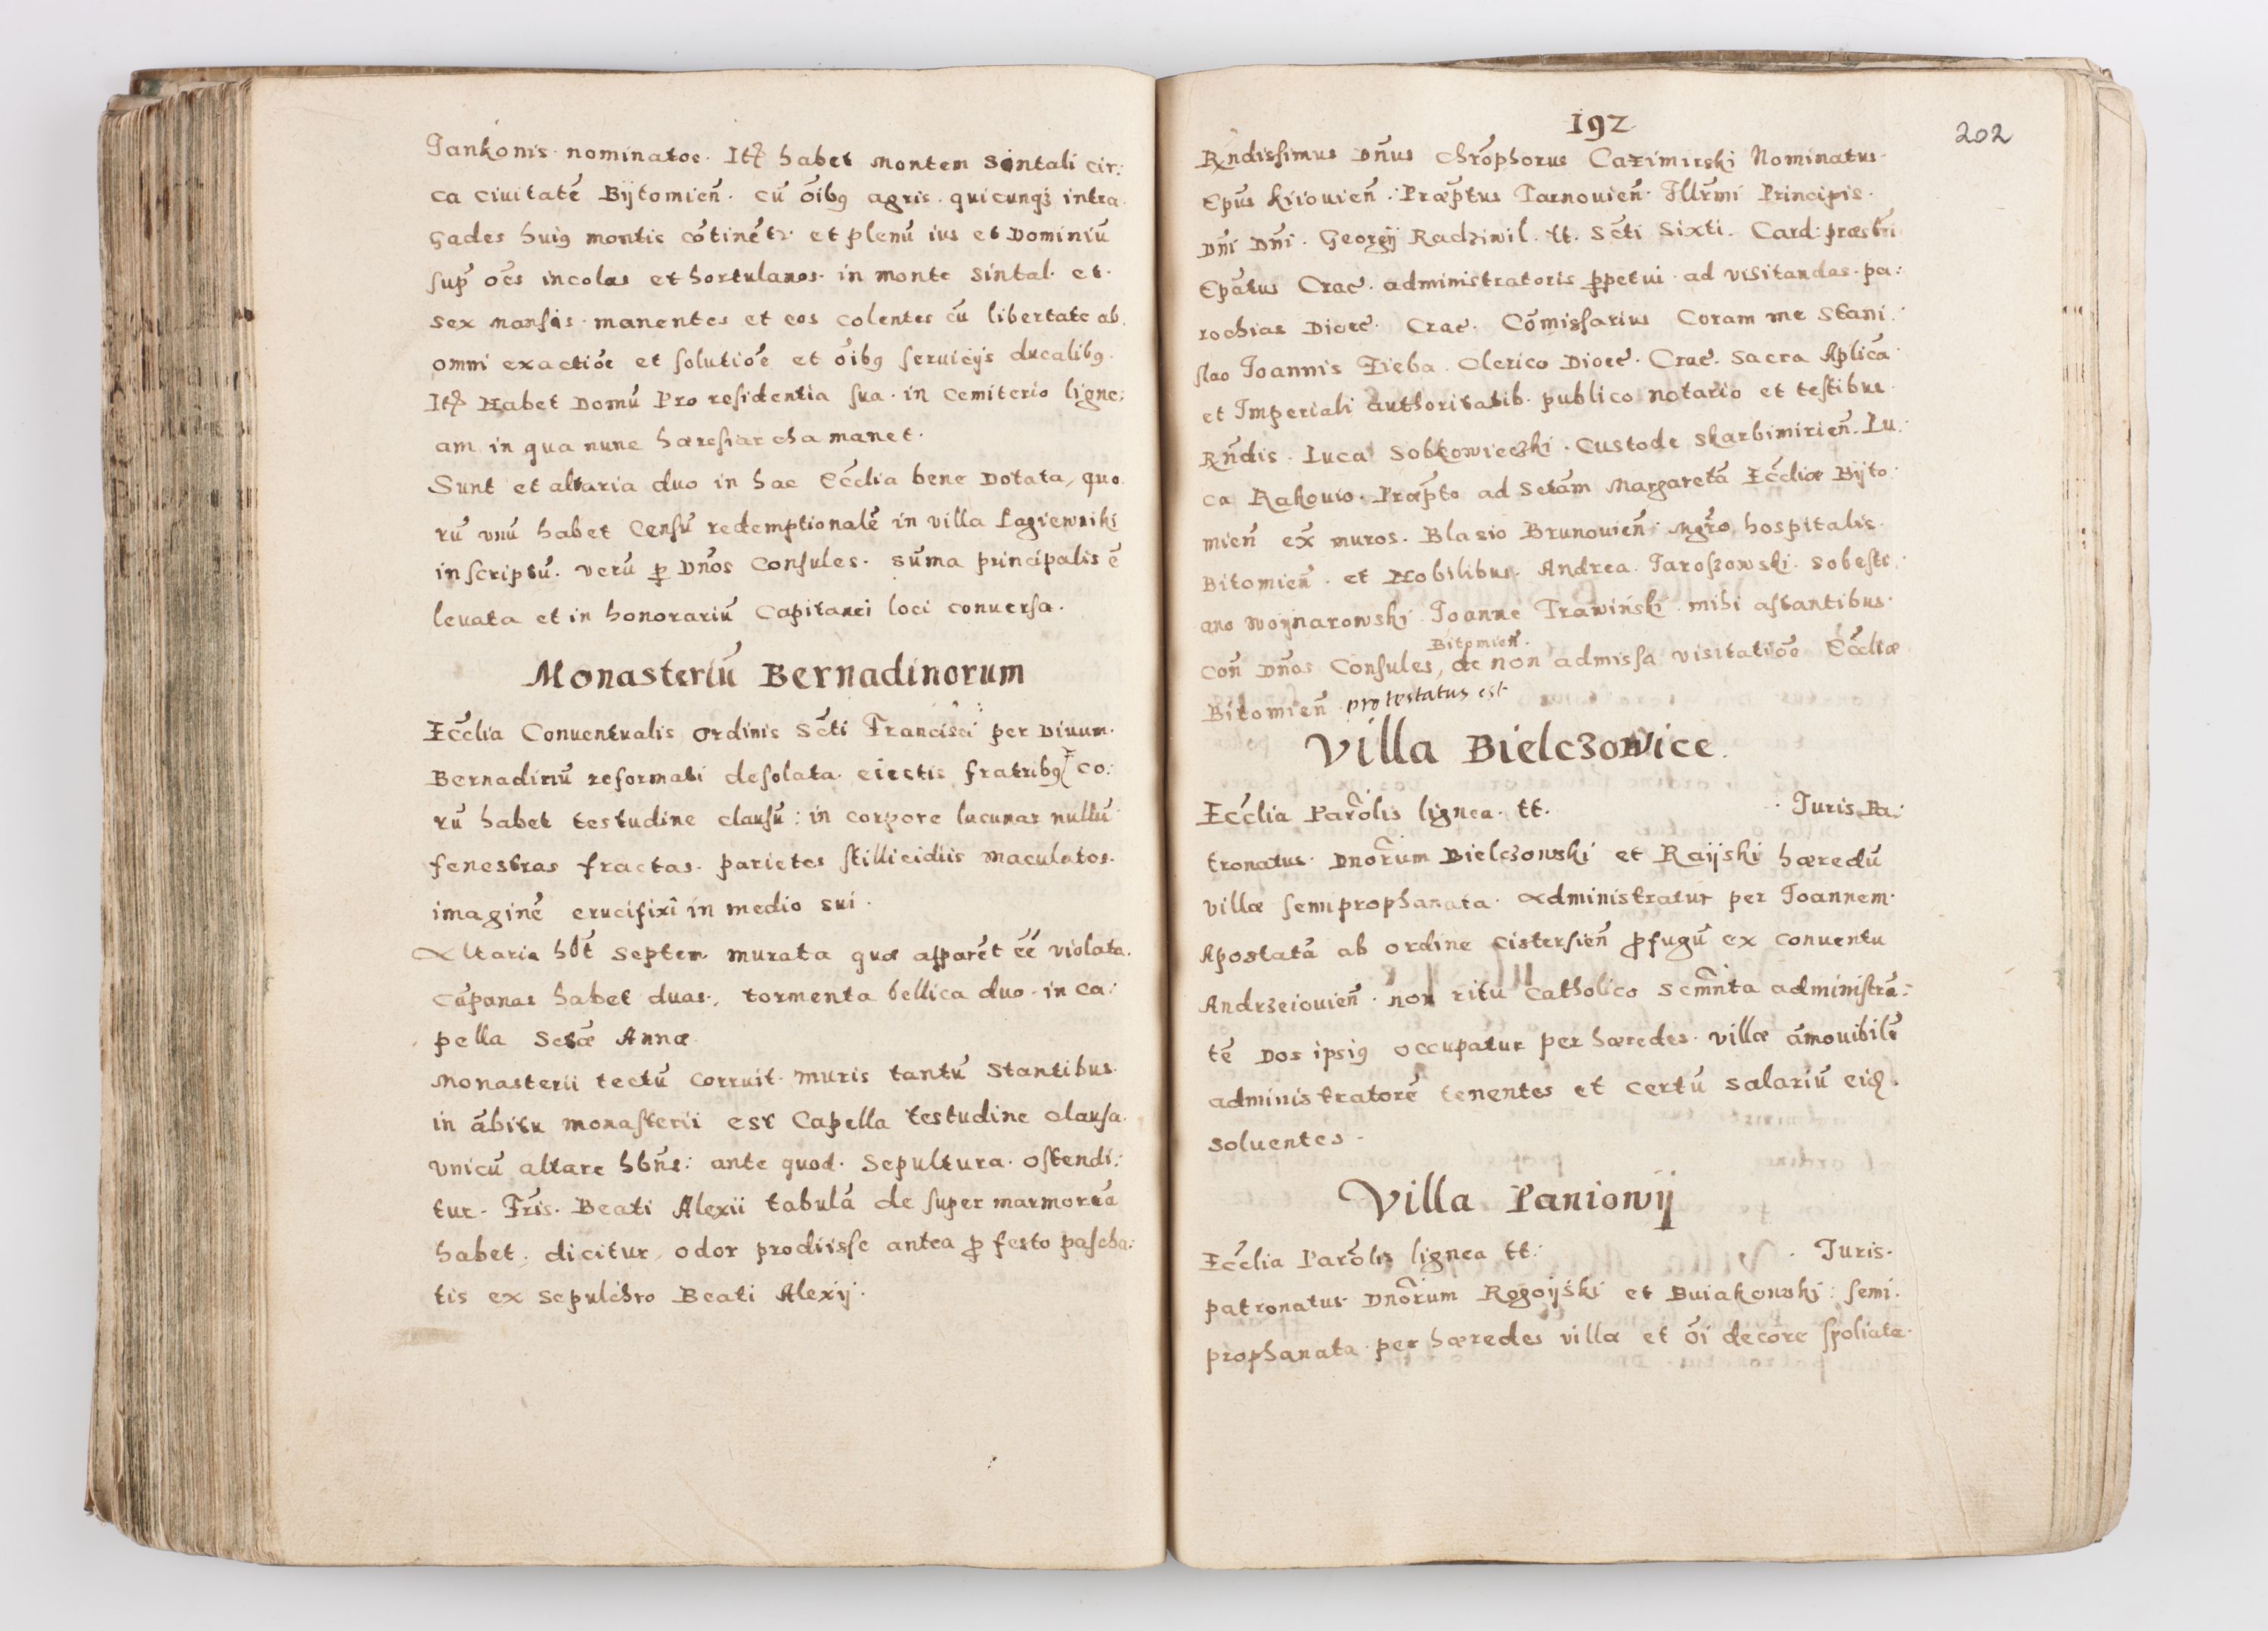 Jankonis nominatos. Itē habet Montem Sintali cir:
ca ciuitatē Bijtomień. cū ōibꝰ agris. quicunqꝫ intra
gades huiꝰ montis cōtinētr. et plenū ius et Dominiū
sup̄ ōēs incolas et hortulanos. in monte Sintal. et.
sex mansis manentes et eos colentes cū libertate ab
omni exactiōe et solutiōe et ōibꝰ seruicijs ducalibꝰ.
Itē Habet Domū Pro residentia sua. in cemiterio ligne:
am in qua nunc hæresiarcha manet.
Sunt et altaria duo in hac Eccłia bene Dotata, quo
rū vnū habet Censū redemptionalē in villa Łagiewniki
inscriptū. verū ꝑ Dn̄os Consules. Sūma principalis ē
leuata et in honorariū Capitanei loci conuersa.
Monasteriū Bernadinorum
Ecc̄lia Conuentualis Ordinis Sc̄ti Francisci per Diuum.
Bernadinū reformati desolata. eiectis fratribꝰ co:
rū habet testudine clausū: in corpore lucunar nullū
fenestras fractas. parietes stillicidiis maculatos.
imaginē crucifixi in medio sui.
Altaria hb̄t Septem murata quæ apparēt ēē violata.
Cāpanas habet duas, tormenta bellica duo in Ca:
pella Sctæ Annæ
Monasterii tectū corruit. muris tantū Stantibus.
in ābitu monasterii est Capella testudine clausa.
vnicū altare hbn̄s: ante quod. Sepultura. ostendi:
tur. Fr̄is. Beati Alexii tabulā de super marmoreā
habet. dicitur odor prodiisse antea ꝓ festo pascha:
tis ex Sepulchro Beati Alexij.
192
202
Rn̄dissimus Dn̄us Chr̄ophorus Cazimirski Nominatus.
Ep̄us Kiiouień. Præp̄tus Tarnouień. Illr̄mi Principis.
Dn̄i Dn̄i. Georgij Radziwil. tt. Sc̄ti Sixti. Card. præsb̄ri
Ep̄atus Crac̄. administratoris ꝑpetui ad visitandas. pa:
rochias Diœc̄. Crac̄. Cōmissarius Coram me Stani:
slao Joannis Zieba. Clerico Diœc̄. Crac̄. Sacra Ap̄lica
et Imperiali authoritatib. publico notario et testibus.
Rn̄dis. Luca Sobkowieczki. Custode Skarbimirień. Lu:
ca Rakouio. Præp̄to ad Sctām Margaretā Ecc̄liæ Bijto:
mień ex̄ muros. Blasio Brunouień. Mgr̄o hospitalis.
Bitomień. et Nobilibus. Andrea. Jaroszowski. Sobesti:
ano Woijnarowski Joanne Trawiński mihi astantibus.
Bitomień.
Con̄ Dn̄os Consules, de non admissa visitatiōe Ecc̄liæ
Bitomień protestatus est
Villa Bielczowice.
Ecc̄lia Parōlis lignea. tt. Juris Pa:
tronatus. Dnōrum Bielczowski et Raijski hæredū
villæ semiprophanata. Administratur per Joannem.
Apostatā ab ordine Cistersień ꝓfugū ex conuentu
Andrzeiouień. non ritu Catholico Scm̄nta administrā:
tē Dos ipsiꝰ occupatur per hæredes. villæ āmouibilē
administratorē tenentes et certū Salariū eid.
Soluentes.
Villa Paniowij
Ecc̄lia Parōlis lignea tt. Juris.
patronatus Dnōrum Rogoijski et Buiakowski: semi.
prophanata per hæredes villæ et ōi decore spoliata.